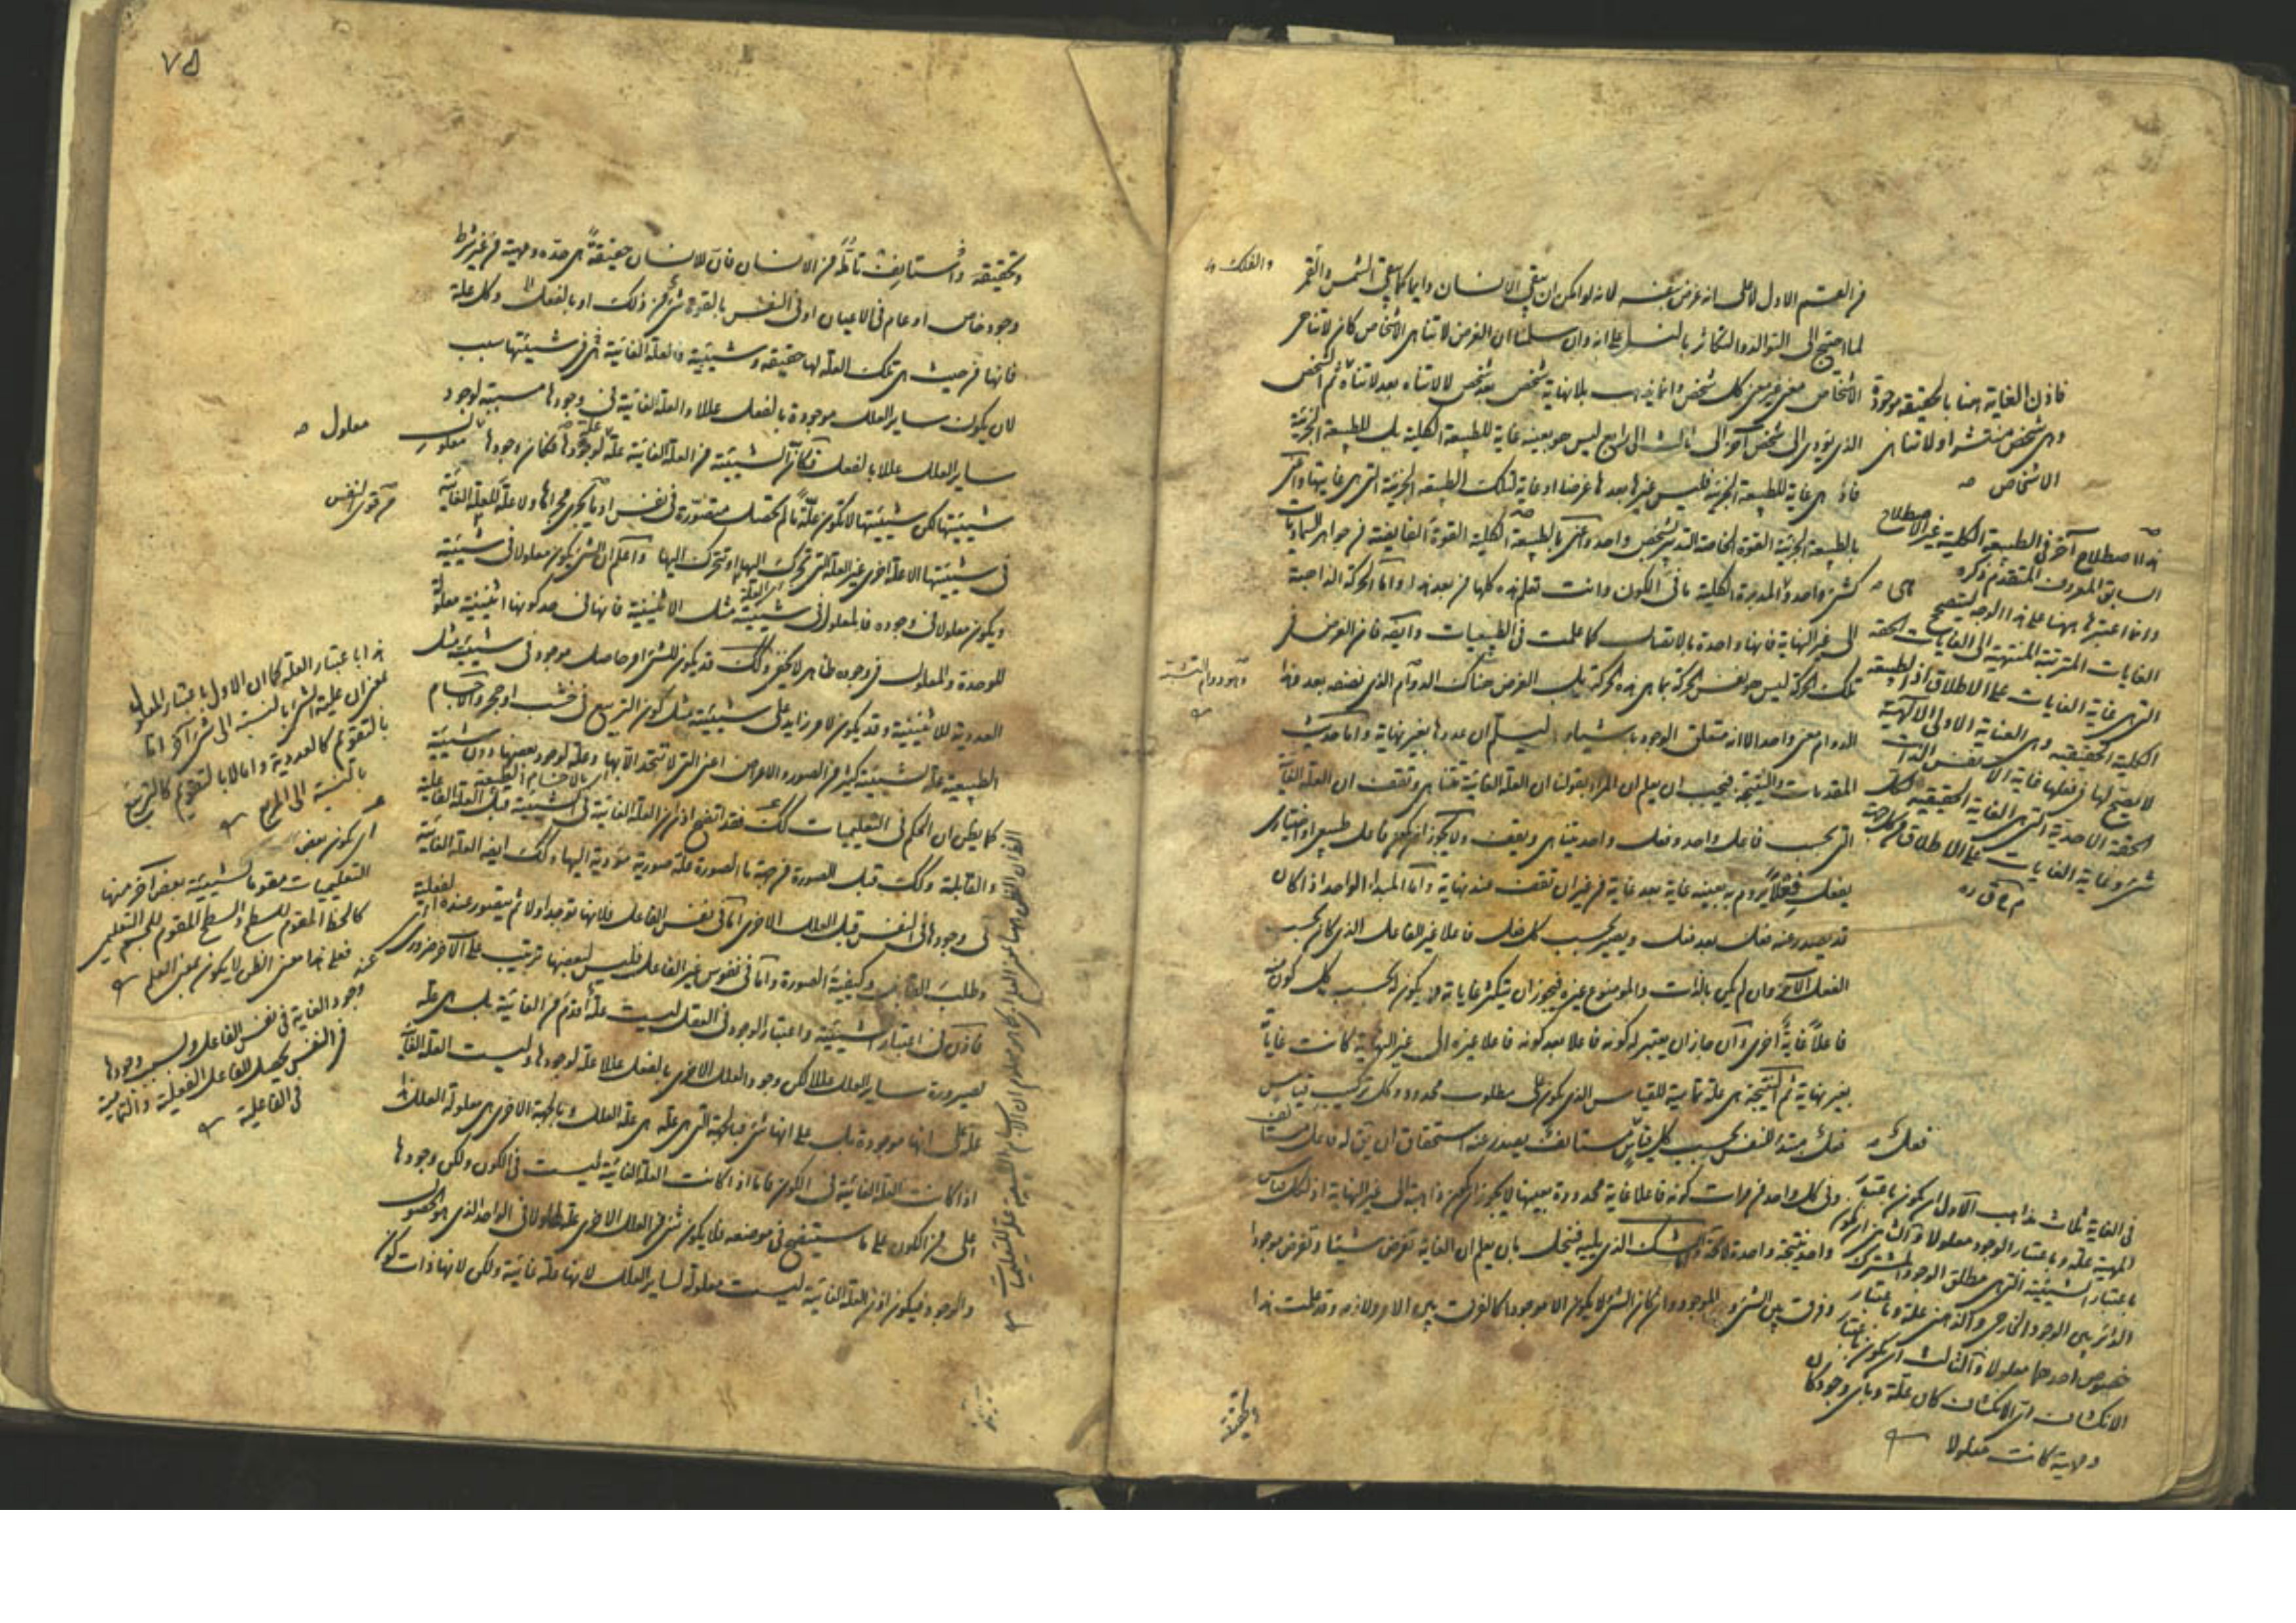 من القسم الاول لا على انه غرض بنفسه لانه لو امكن ان يبقى الانسان دايما كما يبقى الشمس والقمر
والفلك
لما احتيج الى التوالد والتكاثر بالنسل على انه وان سلمنا ان الغرض لا تناهى الاشخاص كان لا تناهى
الاشخاص معنى غير معنى كل شخص وانما يذهب بلا نهاية شخص بعد شخص لا لاتناه بعد لاتناه ثم الشخص
الذى يؤدى الى شخص آخر الى ثالث الى رابع ليس هو بعينه غاية للطبيعة الكلية بل للطبيعة الجزئية
فاذ هى غاية للطبيعة الجزئية فليس غيرها بعدها غرضا او غاية لتلك الطبيعة الجزئية التى هى غايتها واعنى
بالطبيعة الجزئية القوة الخاصة التدبير بشخص واحد واعنى بالطبيعة الكلية القوة الفايضة من جواهر السماويات
كشئ واحد والمدبرة لكلية ما فى الكون وانت تعلم هذه كلها من بعد هذا واما الحركة الذاهبة
الى غير النهاية فانها واحدة بالاتصال كما علمت فى الطبيعيات وايضا فان الغرض فى
تلك الحركة ليس هو نفس الحركة بما هى هذه الحركة بل الغرض هناك الدوام الذى نصفه بعد وهذا
الدوام معنى واحد الا انه متعلق الوجود باشياء ليسلم ان عددها بغير نهاية واما حديث
المقدمات والنتيجة فيجب ان يعلم ان المراد بقولنا ان العلة الغائية تتناهى وتقف ان العلة الغائية
التى بحسب فاعل واحد وفعل واحد يتناهى ويقف ولا يجوز ان يكون فاعل طبيعى او اختيارى
يفعل فعلا يروم به بعينه غاية بعد غاية من غير ان تقف عند نهاية واما المبدا الواحد اذا كان
قد يصدر عنه فعل بعد فعل ويصير بحسب كل فعل فاعلا غير الفاعل الذى كان بحسب
الفعل الآخر وان لم يكن بالذات والموضوع غيره فيجوز ان يتكثر غاياته ويكون له بحسب كل كون منه
فاعلا غاية اخرى وان جاز ان يعتبر له كونه فاعلا بعد كونه فاعلا غيره الى غير النهاية كانت غاياته
بغير نهاية ثم النتيجة هى علة تمامية للقياس الذى يكون على مطلوب محدود وكل تركيب قياس
فعل مبتدا للنفس بحسب كل قياس مستانف يصدر عنه استحقاق ان يق له فاعل مستانف
وفى كل واحد من مرات كونه فاعلا غاية محدودة بعينها لا يجوز ان يكون ذاهبة الى غير النهاية اذ لكل قياس
واحد نتيجة واحدة لا محة واما الشك الذى يليه فينحل بان يعلم ان الغاية تفرض شيئا وتفرض موجودا
وفرق بين الشئ والموجود وان كان الشئ لا يكون الا موجودا كالفرق بين الامر ولازمه وقد علمت هذا
وتحققته
فاذن الغاية هنا بالحقيقة موجودة
وهى شخص منتشر او لا تناهى
الاشخاص صه
هذا اصطلاح آخر فى الطبيعة الكلية غير الاصطلاح
السابق المعروف المتقدم ذكره
وانما اعتبرها ههنا على هذا الوجه لتستصح
الغايات المترتبة المنتهية الى الغايات الحقة
التى هى غاية الغايات على الاطلاق اذ الطبيعة
الكلية الحقيقية وهى العناية الاولى الالهية
لا يصح لها فى فعلها غاية الا نفس الذات
الحقة الاحدية التى هى الغاية الحقيقية لكل
شئ وغاية الغايات على الاطلاق من كل جهة
م ح ق ره
فعل صه
فى الغاية ثلاث مذاهب الاول ان يكون باعتبار
المهية علة وباعتبار الوجود معلولا والثانى ان يكون
باعتبار الشيئية التى هى مطلق الوجود المشترك
الدائر بين الوجود الخارجى والذهنى علة وباعتبار
خصوص احدهما معلولا والثالث ان يكون باعتبار
٧٥
وتحققته واستانف تامله من الانسان فان للانسان حقيقة هى حده ومهيته من غير شرط
وجود خاص او عام فى الاعيان او فى النفس بالقوة شئ من ذلك او بالفعل وكل علة
فانها من حيث هى تلك العلة لها حقيقة وشيئية فالعلة الغائية هى فى شيئيتها سبب
لان يكون ساير العلل موجودة بالفعل عللا والعلة الغائية فى وجودها مسببة لوجود
ساير العلل عللا بالفعل فكان الشيئية من العلة الغائية علة علة وجودها وكان وجودها معلول
شيئيتها لكن شيئيتها لا تكون علة ما لم تحصل متصورة فى نفس او ما يجرى مجراها ولا علة للعلة الغائية
فى شيئيتها الا علة اخرى غير العلة التى تحرك اليها او تتحرك اليها واعلم ان الشئ يكون معلولا فى شيئيته
ويكون معلولا فى وجوده فالمعلول فى شيئيته مثل الاثنينية فانها فى حد كونها اثنينية معلولة
للوحدة والمعلول فى وجوده ظاهر لا يخفى وكك قد يكون للشئ امر حاصل موجود فى شيئيته مثل
العددية للاثنينية وقد يكون لامر زايد على شيئيته مثل كون التربيع فى خشب او حجر والاجسام
الطبيعية علة لشيئية كثير من الصور والاعراض اعنى التى لا تتحدد الا بها وعلة لوجود بعضها دون شيئيته
كما يظن ان الحكم فى التعليميات كك فقد اتضح اذن ان العلة الغائية فى الشيئية قبل العلة الفاعلية
والقابلية وكك قبل الصورة من جهة ما الصورة علة صورية مؤدية اليها وكك ايضا العلة الغائية
فى وجودها فى النفس قبل العلل الاخرى اما فى نفس الفاعل فلانها توجد اولا ثم يتصور عنده الفاعلية
وطلب القابل وكيفية الصورة واما فى نفوس غير الفاعل فليس لبعضها ترتيب على الآخر ضرورى
فاذن فى اعتبار الشيئية واعتبار الوجود فى العقل ليست علة اقدم من الغائية بل هى علة
لصيرورة ساير العلل عللا لكن وجود العلل الاخرى بالفعل عللا علة لوجودها وليست العلة الغائية
علة على انها موجودة بل على انها شئ فبالجهة التى هى علة هى علة العلل وبالجهة الاخرى هى معلولة العلل هذا
اذا كانت العلة الغائية فى الكون فاما اذا كانت العلة الغائية ليست فى الكون ولكن وجودها
اعلى من الكون على ما سيتضح فى موضعه فلا يكون شئ من العلل الاخرى علة لها ولا فى الواحد الذى هو الحصول
والوجود فيكون اذن العلة الغائية ليست معلولة لساير العلل لانها علة غائية ولكن لانها ذات كون
معلول صه
هذا باعتبار العلة كما ان الاول باعتبار المعلول
بالنسبة الى المربع
اى كون بعض
التعليميات مقوما لشيئية بعض آخر منها
كالخط المقوم للسطح والسطح المقوم للجسم التعليمى
فعلى هذا معنى الظن لا يكون بمعنى العلم
وجود الغاية فى نفس الفاعل وليس وجودها
فى الفاعلية